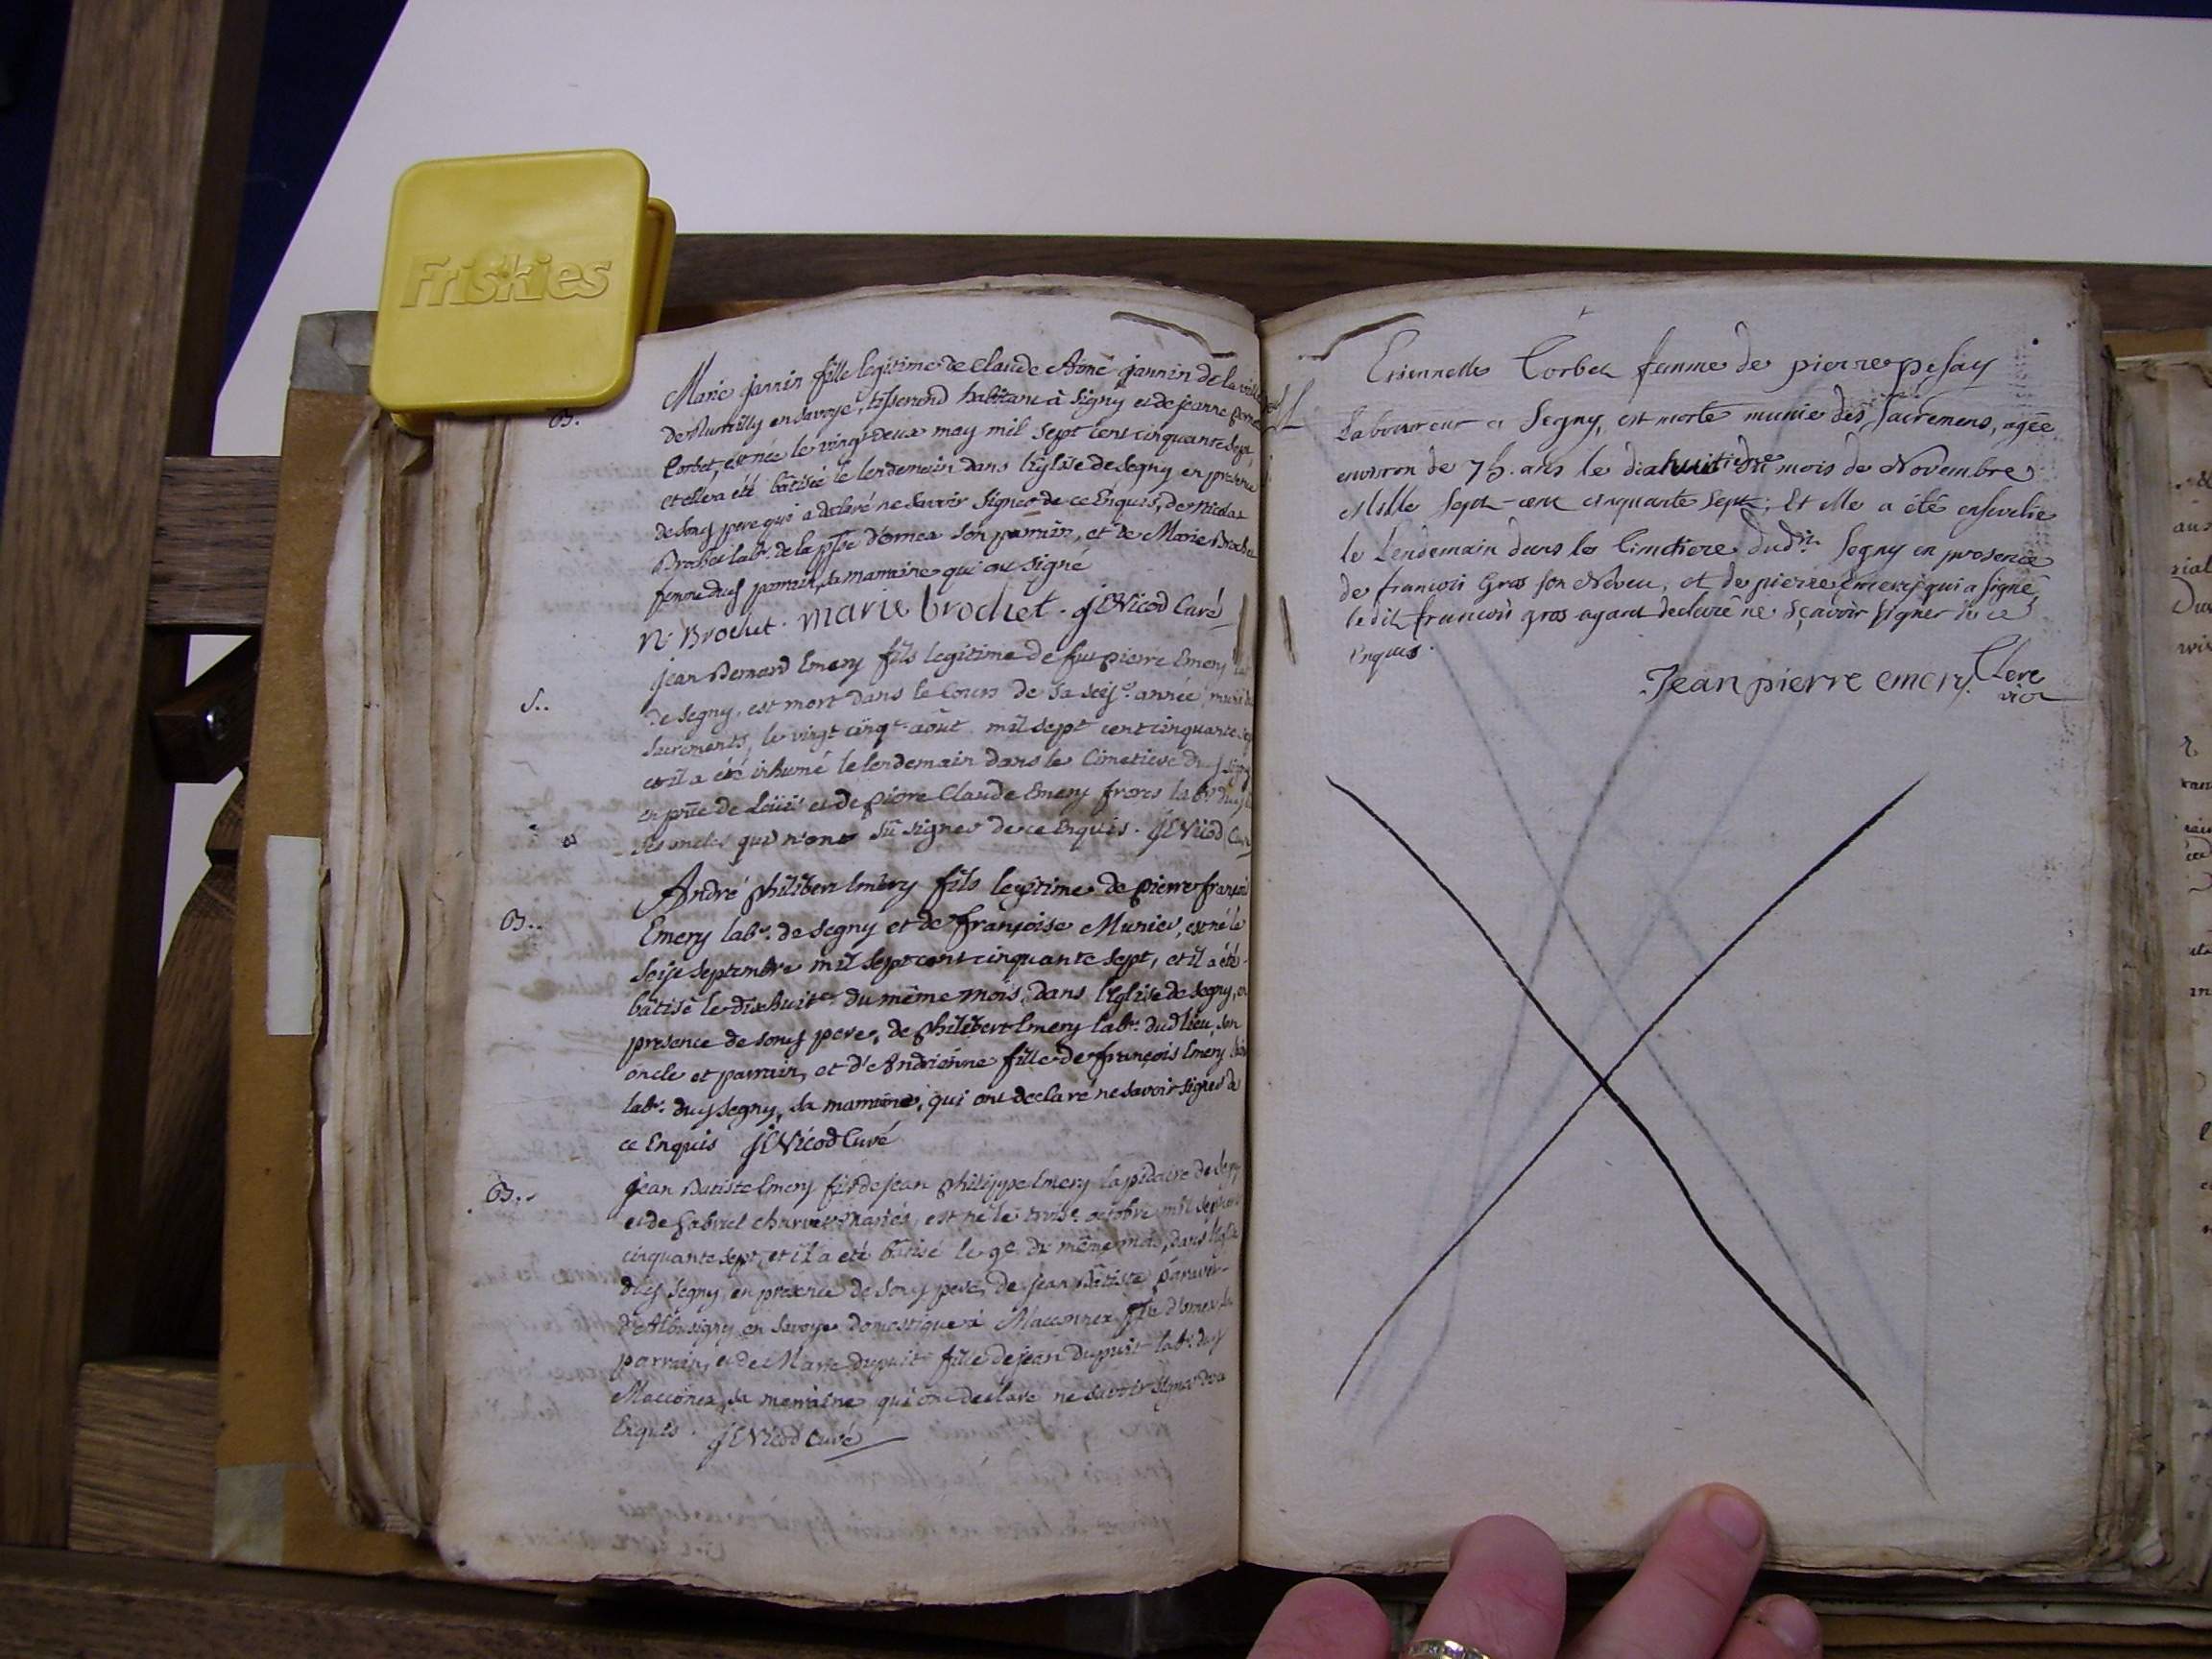 Friskies
B.
Marie jannin fille legitime de Claude Aimé jannin de la
de Rumilly en Savoye, tisserand habitant à Segny et de jeanne
Corbet, est née le vingt deux may mil sept cent cinquante sept,
et elle a été bâtisée le lendemain dans l'Eglise de Segny en presence
de soud pere qui a declaré ne savoir signer de ce Enquis, de Nicolas
Brochet labr. de la psse d'ornex son parrain, et de Marie Brochet
femme dud parrain, sa marraine qui ont signé
N. Brochet. marie brochet. JC Nicod Curé
S..
jean Bernard Emery fils legitime de fut pierre Emery
de Segny, est mort dans le Cours de sa année, muni
sacrements, le vingt cinqt. août mil sept cent cinquante sep
et il a été inhumé le lendemain dans le Cimetiere dud Segny
en pnce de Loüis et de piere Claude Emery freres labr. dud
ses oncles qui n'ont sü signer de ce Enquis. JC Nicod Curé
B..
André philibert Emery fils legitime de pierre françois
Emery labr. de Segny et de françoise Munier, est né le
seize septembre mil sept cent cinquante sept, et il a été
bâtisé le dixhuite. du même mois, dans l'Eglise de Segny, en
presence de soud pere, de philibert Emery labr. dud lieu, son
oncle et parrain, et d'Andrienne fille de françois Emery
labr. dud Segny, sa marraine, qui ont declaré ne savoir signer de
ce Enquis JC Nicod Curé
B..
jean Batiste Emery fils de jean philippe Emery lapidaire de Segny
et de Gabriel mariés, est né le troise. octobre mil sept cent
cinquante sept, et il a été bâtisé le 9e. du même mois, dans l'Eglise
dud Segny, en presence de soud pere, de jean Bâtiste
en Savoye domestique à Maconnex psse d'ornex, son
parrain, et de Marie dupuit fille de jean dupuit labr. dud
Maconnex, sa marraine qui ont declaré ne savoir signer de ce
Enquis. JC Nicod Curé
Etiennette Corbet femme de pierre pesay
Laboureur a Segny, est morte munie des sacremens, agée
environ de 75. ans le dixhuitieme du mois de Novembre
Mille sept-cent cinquante sept; Et elle a été ensevelie
le Lendemain dans le Cimetiere dudit. Segny en presence
de francois Gros son Neveu, et de pierre Emery qui a signé
ledit francois gros ayant declaré ne sçavoir signer de ce
enquis.
Jean pierre emery. Clerc
vic